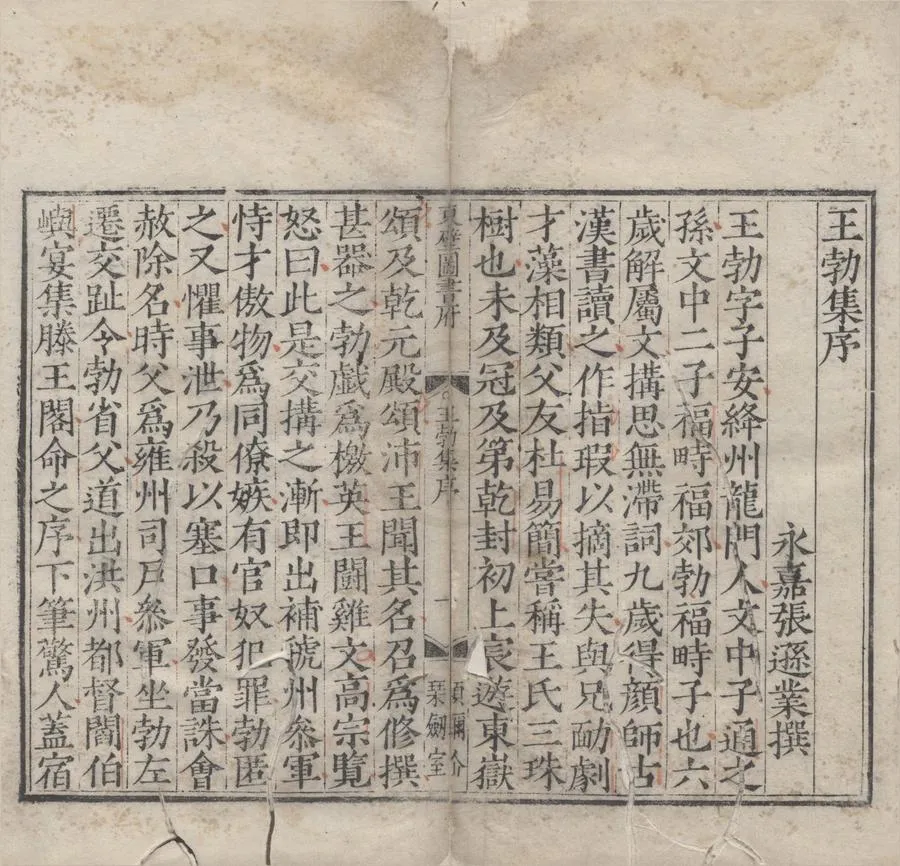 王勃集序
永嘉張遜業撰
王勃字子安絳州龍門人文中子通之
孫文中二子福畤福郊勃福畤子也六
歲解屬文搆思無滯詞九歲得顏師古
漢書讀之作指瑕以摘其失與兄勔劇
才藻相類父友杜易簡嘗稱王氏三珠
樹也未及冠及第乾封初上宸遊東嶽
東壁圖書府
王勃集序
一
頌及乾元殿頌沛王聞其名召爲修撰
甚器之勃戲爲檄英王鬪雞文高宗覽
怒曰此是交搆之漸即出補虢州叅軍
恃才傲物爲同僚嫉有官奴犯罪勃匿
之又懼事泄乃殺以塞口事發當誅會
赦除名時父爲雍州司戶叅軍坐勃左
遷交趾令勃省父道出洪州都督閻伯
嶼宴集滕王閣命之序下筆驚人蓋宿